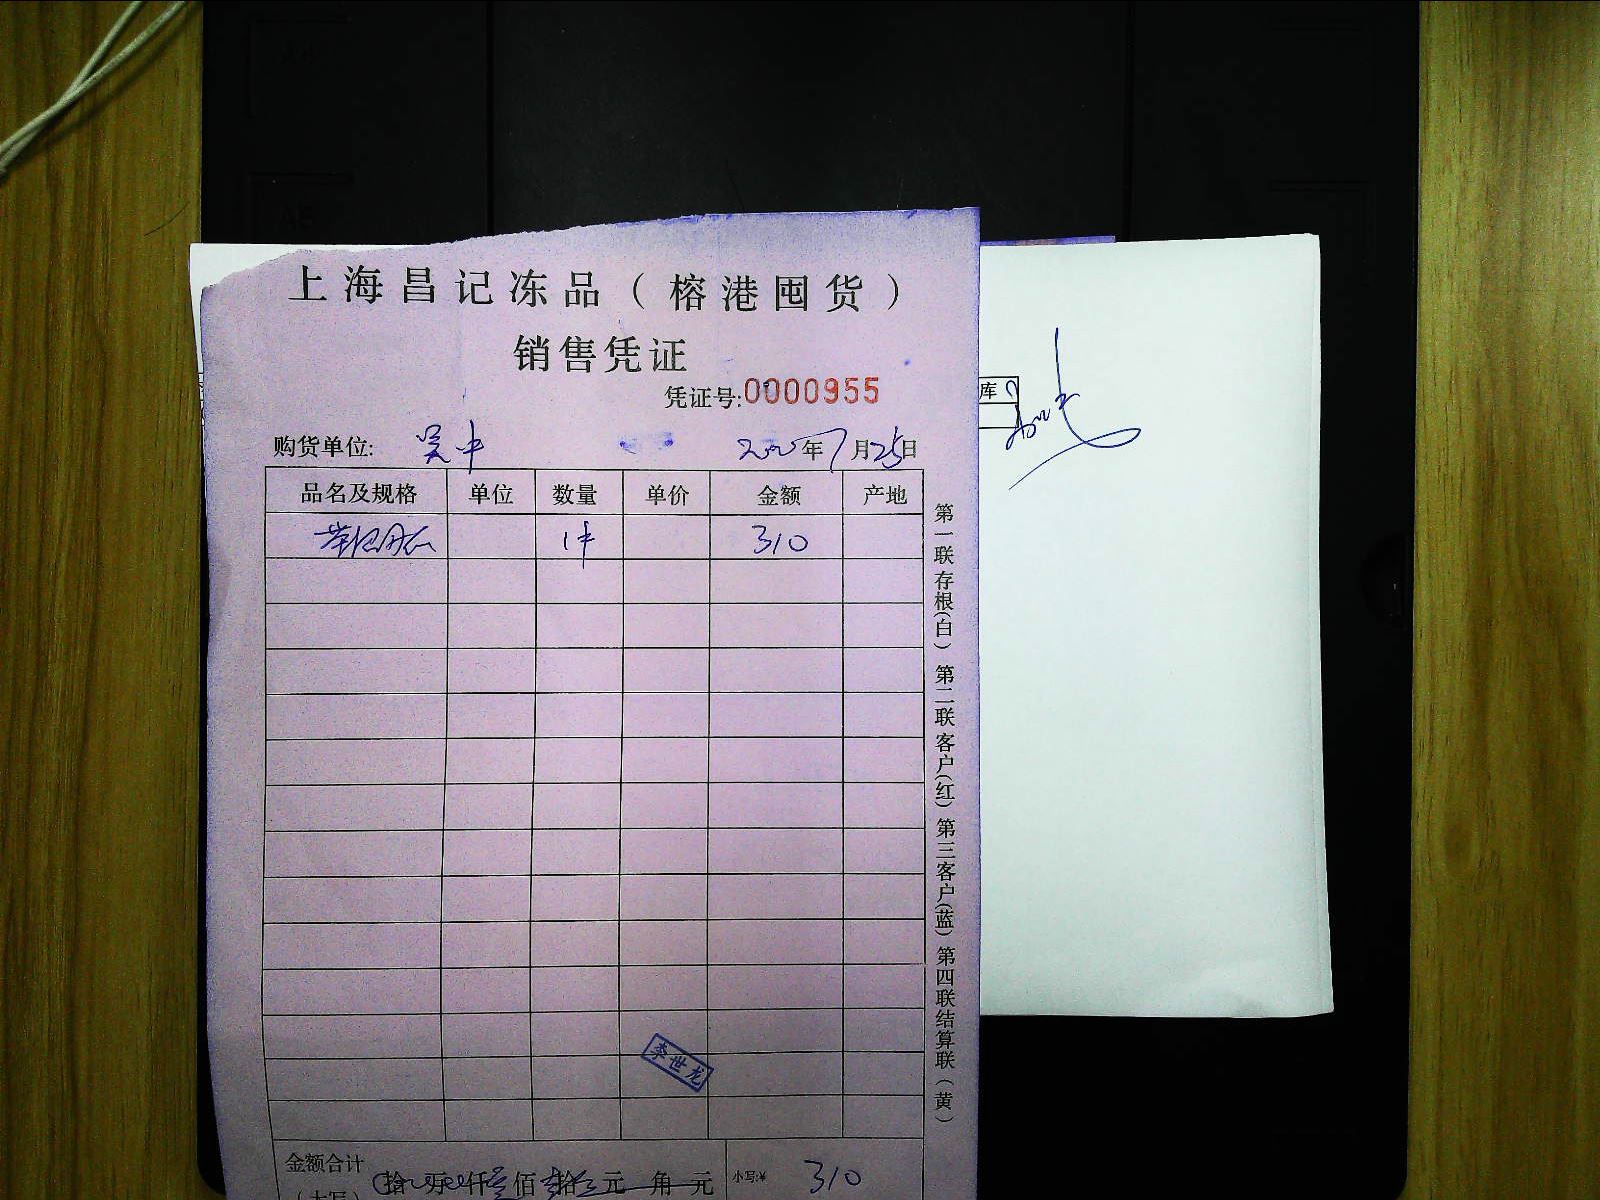 上海昌记冻品（榕港囤货）
销售凭证
凭证号:0000955
购货单位: 吴中 年7月25日
品名及规格 单位 数量 单价 金额 产地
1件 310
第一联存根(白) 第二联客户(红) 第三客户(蓝) 第四联结算联(黄)
李世龙
金额合计
(大写) 拾 万 仟 佰 拾 元 角 元 小写:¥ 310
库